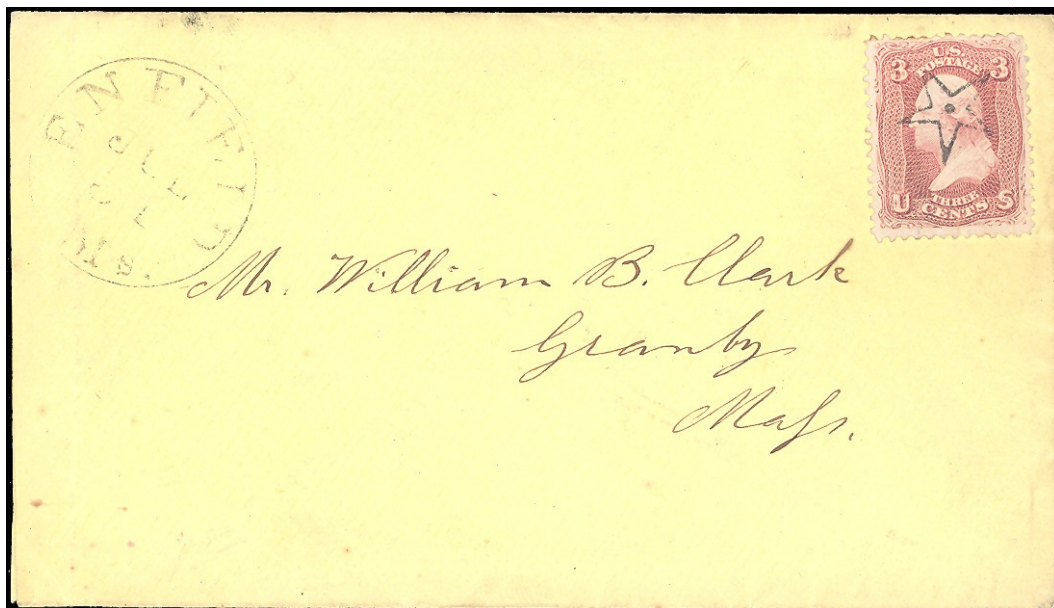 ENFIELD
JUL
U.S.
POSTAGE
3 3
THREE
CENTS
U S
Mr. William B. Clark
Granby
Maſs.